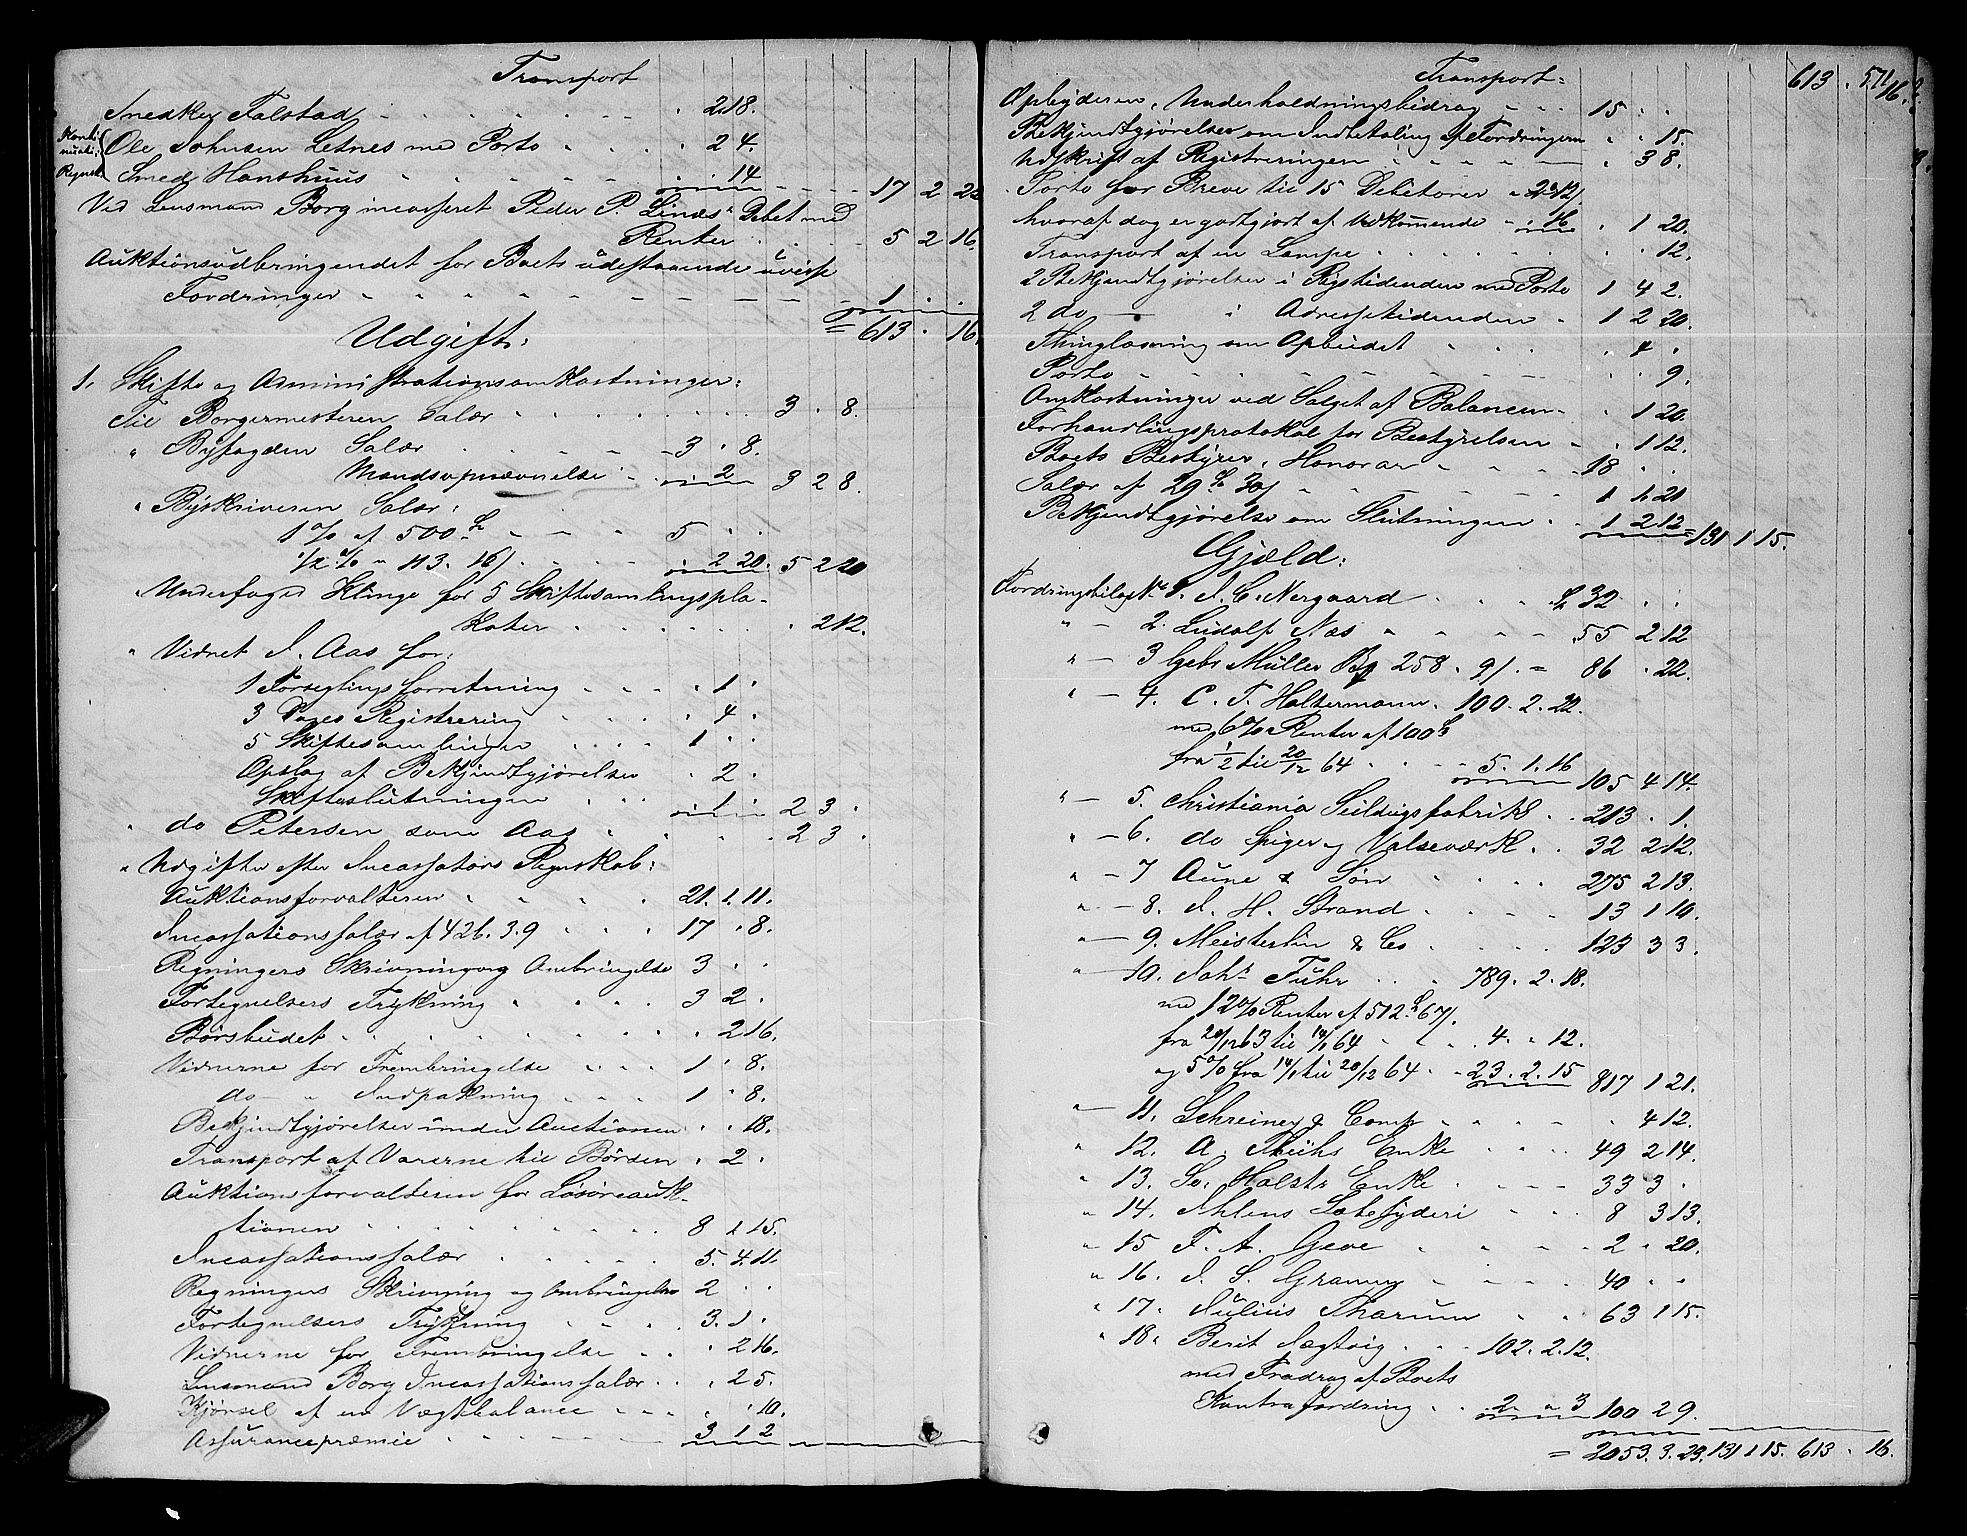 Transport
Snedker Falstad . . . . . . . 2 18.
Ole Johnsen Letnes med Porto . . . . 2 4.
Smed Hanshuus . . . . . . 14 17 2 22
Ved Lensmand Borg incasseret Peder P. Lindes Debet med
Renter . . . . 5 2 16.
Auktionsudbringendet for Boets udestaaende uvisse
Fordringer . . . . . . . . 1 . .
= 613 . 16.
Udgift:
1. Skifte og Administrationsomkostninger:
Til Borgermesteren Salær . . . . . . 3 . 8.
" Byfogden Salær . . . . . 3 . 8.
Mandsopnævnelse . . 2 3 2 8.
" Byskriveren Salær:
1 % af 500 . . . . 5 . .
1/2 % " 113. 16/ . . . . 2 20. 5 2 20
" Underfoged Klinge for 5 Skiftesamlingspla-
kater . . . . . . 2 12.
" Vidnet J. Aas for:
1 Forseglingsforretning . . . . 1 .
3 Dages Registrering . . . . 4 .
5 Skiftesamlinger . . . . 1 . .
Opslag af Bekjendtgjørelser . 2 .
Skifteslutningen . . . 1 . 2 3 .
" do Petersen som Aas . . . . 2 3 .
" Udgifter efter Incassators Regnskab:
Auktionsforvalteren . . . . 21. 1. 11.
Incassationssalær af 426. 3. 9 . . . 17 . 8.
Regningers Skrivning og Ombringelse 3 . .
Fortegnelsers Trykning . . . . 3 2 .
Børsbudet . . . . . . . . 2 16.
Vidnerne for Frembringelse . . . 1 . 8.
do " Indpakning . . . 1 . 8.
Bekjendtgjørelser under Auctionen . . 18.
Transport af Varerne til Børsen . 2 .
Auktionsforvalteren for Løsøreauk-
tionen . . . . . . . . 8 1 15.
Incassationssalær . . . . . 5. 4. 11.
Regningers Skrivning og Ombringelse 2 . .
Fortegnelsers Trykning . . . . 3. 1 .
Vidnerne for Frembringelse . . . 2 16.
Lensmand Borg Incassationssalær . . . 2 5.
Kjørsel af en Vægtbalance . . . . . 10.
Assurancepræmie . . . . . . 3 1 2
Transport = 613 .
Opbyderen, Underholdningsbidrag . . . 15 . .
Bekjendtgjørelser om Indbetaling af Fordringerne . . 15.
Udskrift af Registreringen . . . . . . 3 8.
Porto for Breve til 15 Debitorer
hvoraf dog er godtgjort af Vedkommende " 16 . 1 20.
Transport af en Lampe . . . . . . . 12.
2 Bekjendtgjørelser i Rigstidenden med Porto 1 4 2.
2 do — i Adressetidenden . 1 2 20.
Thinglæsning om Opbudet . . . . 4 .
Porto . . . . . . . . . 9.
Omkostninger ved Salget af Balancen . . 1 20.
Forhandlingsprotokol for Bestyrelsen . . 1 12.
Boets Bestyrer, Honorar . . . . 18 . .
Salær af . . . . . . 1 1. 21
Bekjendtgjørelse om Slutningen . . 1 2 12 = 131 1 15.
Gjæld:
Fordringsbilag No 1. J. C. Nergaard . . . . 32 . .
" — 2. Ludolf Næs . . . . 55 2 12
" — 3 Gebr Müller 258. 9/. = 86 . 22.
" — 4. C. T. Holtermann. 100. 2. 22.
med 6% Renter af 100
fra 1/2 til 20/12 64 . . . 5. 1. 16 105 4 14.
" — 5. Christiania Seildugsfabrik . . 213 . 1.
" — 6. do Spiger og Valseværk . . 32 2 12.
" — 7 Aune & Søn . . . . 275 2 13.
" — 8. J. H. Strand . . . . 13 1 10.
" — 9. Meisterlin & Co . . . . 123 3 3.
" — 10. Johs Fuhr . . . 789. 2. 18.
med 12% Renter af 512 67/.
fra 29/12 63 til 14/1 64 . . . 4. " 12.
og 5% fra 14/1 til 20/12 64 . . 23. 2. 15 817 1 21.
" — 11. Schreiner & Comp . . . . . 4 12.
" 12. A. Enke . . . . 49 2 14.
" 13. Holsts Enke . . . . 33 3 .
" 14. Ihlens . . . 8 3 13.
" 15 F. A. Geve . . . . 2 . 20.
" 16. J. S. . . . . 40 . .
" 17. Julius Tharum . . 63 1 15.
" 18. Berit Sægtvig . . . 102. 2. 12.
med Fradrag af Boets
Kontrafordring . . 2. " 3 100 2 9.
= 2053. 3. 23. 131 1 15. 613 . 16.